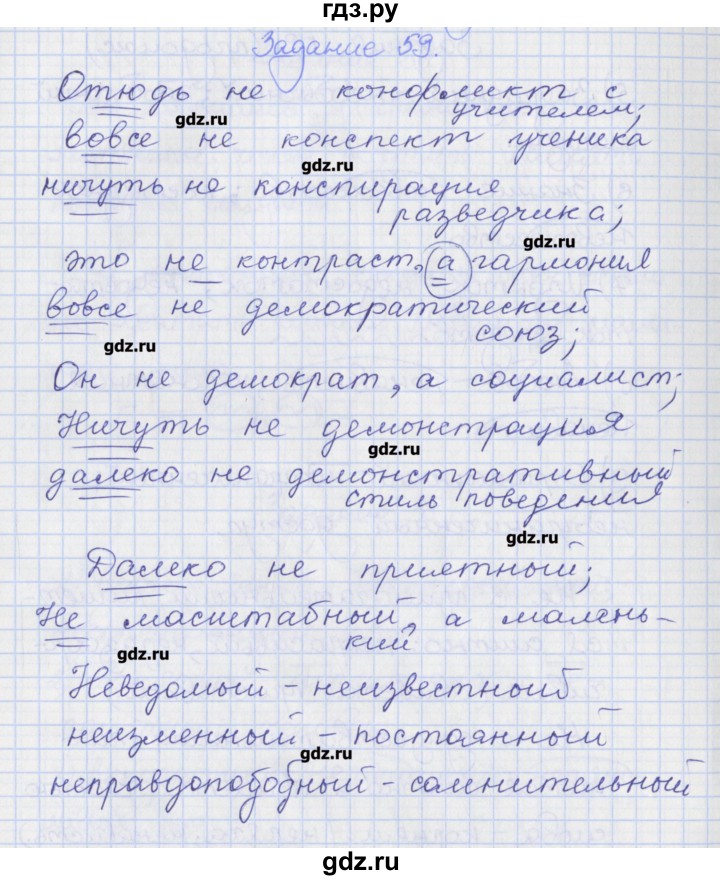 гдз.ру
Задание 59.
Отюдь не конфликт с
учителем;
gdz.ru
вовсе не конспект ученика
gdz.ru
ничуть не конспирация
разведчика;
gdz.ru
это не контраст, а гармония
вовсе не демократический
союз;
gdz.ru
Он не демократ, а социалист;
Ничуть не демонстрация
gdz.ru
далеко не демонстративный
стиль поведения
gdz.ru
Далеко не приятный;
Не масштабный, а малень-
кий
gdz.ru
Неведомый - неизвестный
неизменный - постоянный
gdz.ru
неправдоподобный - сомнительный
gdz.ru